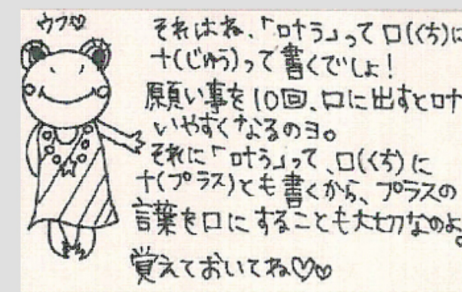 ウフ♡
それはね、「叶う」って口(くち)に
十(じゅう)って書くでしょ!
願い事を10回、口に出すと叶
いやすくなるのヨ。
それに「叶う」って、口(くち)に
十(プラス)とも書くから、プラスの
言葉を口にすることも大切なのよ。
覚えておいてね♡♡